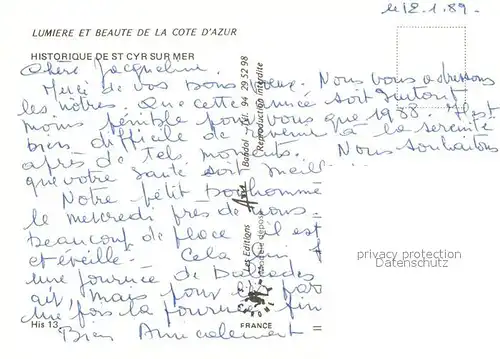 le 12.1.89.
LUMIERE ET BEAUTE DE LA COTE D'AZUR
HISTORIQUE DE ST CYR SUR MER
Chère Jacqueline.
Merci de vos bons vœux. Nous vous adressons
les nôtres. Que cette année soit surtout
moins pénible pour vous que 1988. Il est
bien difficile de revenir à la sérénité
après de tels moments. Nous souhaitons
que votre santé soit meill...
Notre petit bonhomme
le mercredi près de nous
beaucoup de place il est
et éveillé - Cela
une journée de
ait, mais pour
une fois la journée fin
Bien Amicalement
Les Editions
Modèle déposé
Bandol Tél. 94 29 52 98
Reproduction interdite
privacy protection
Datenschutz
His 13
FRANCE